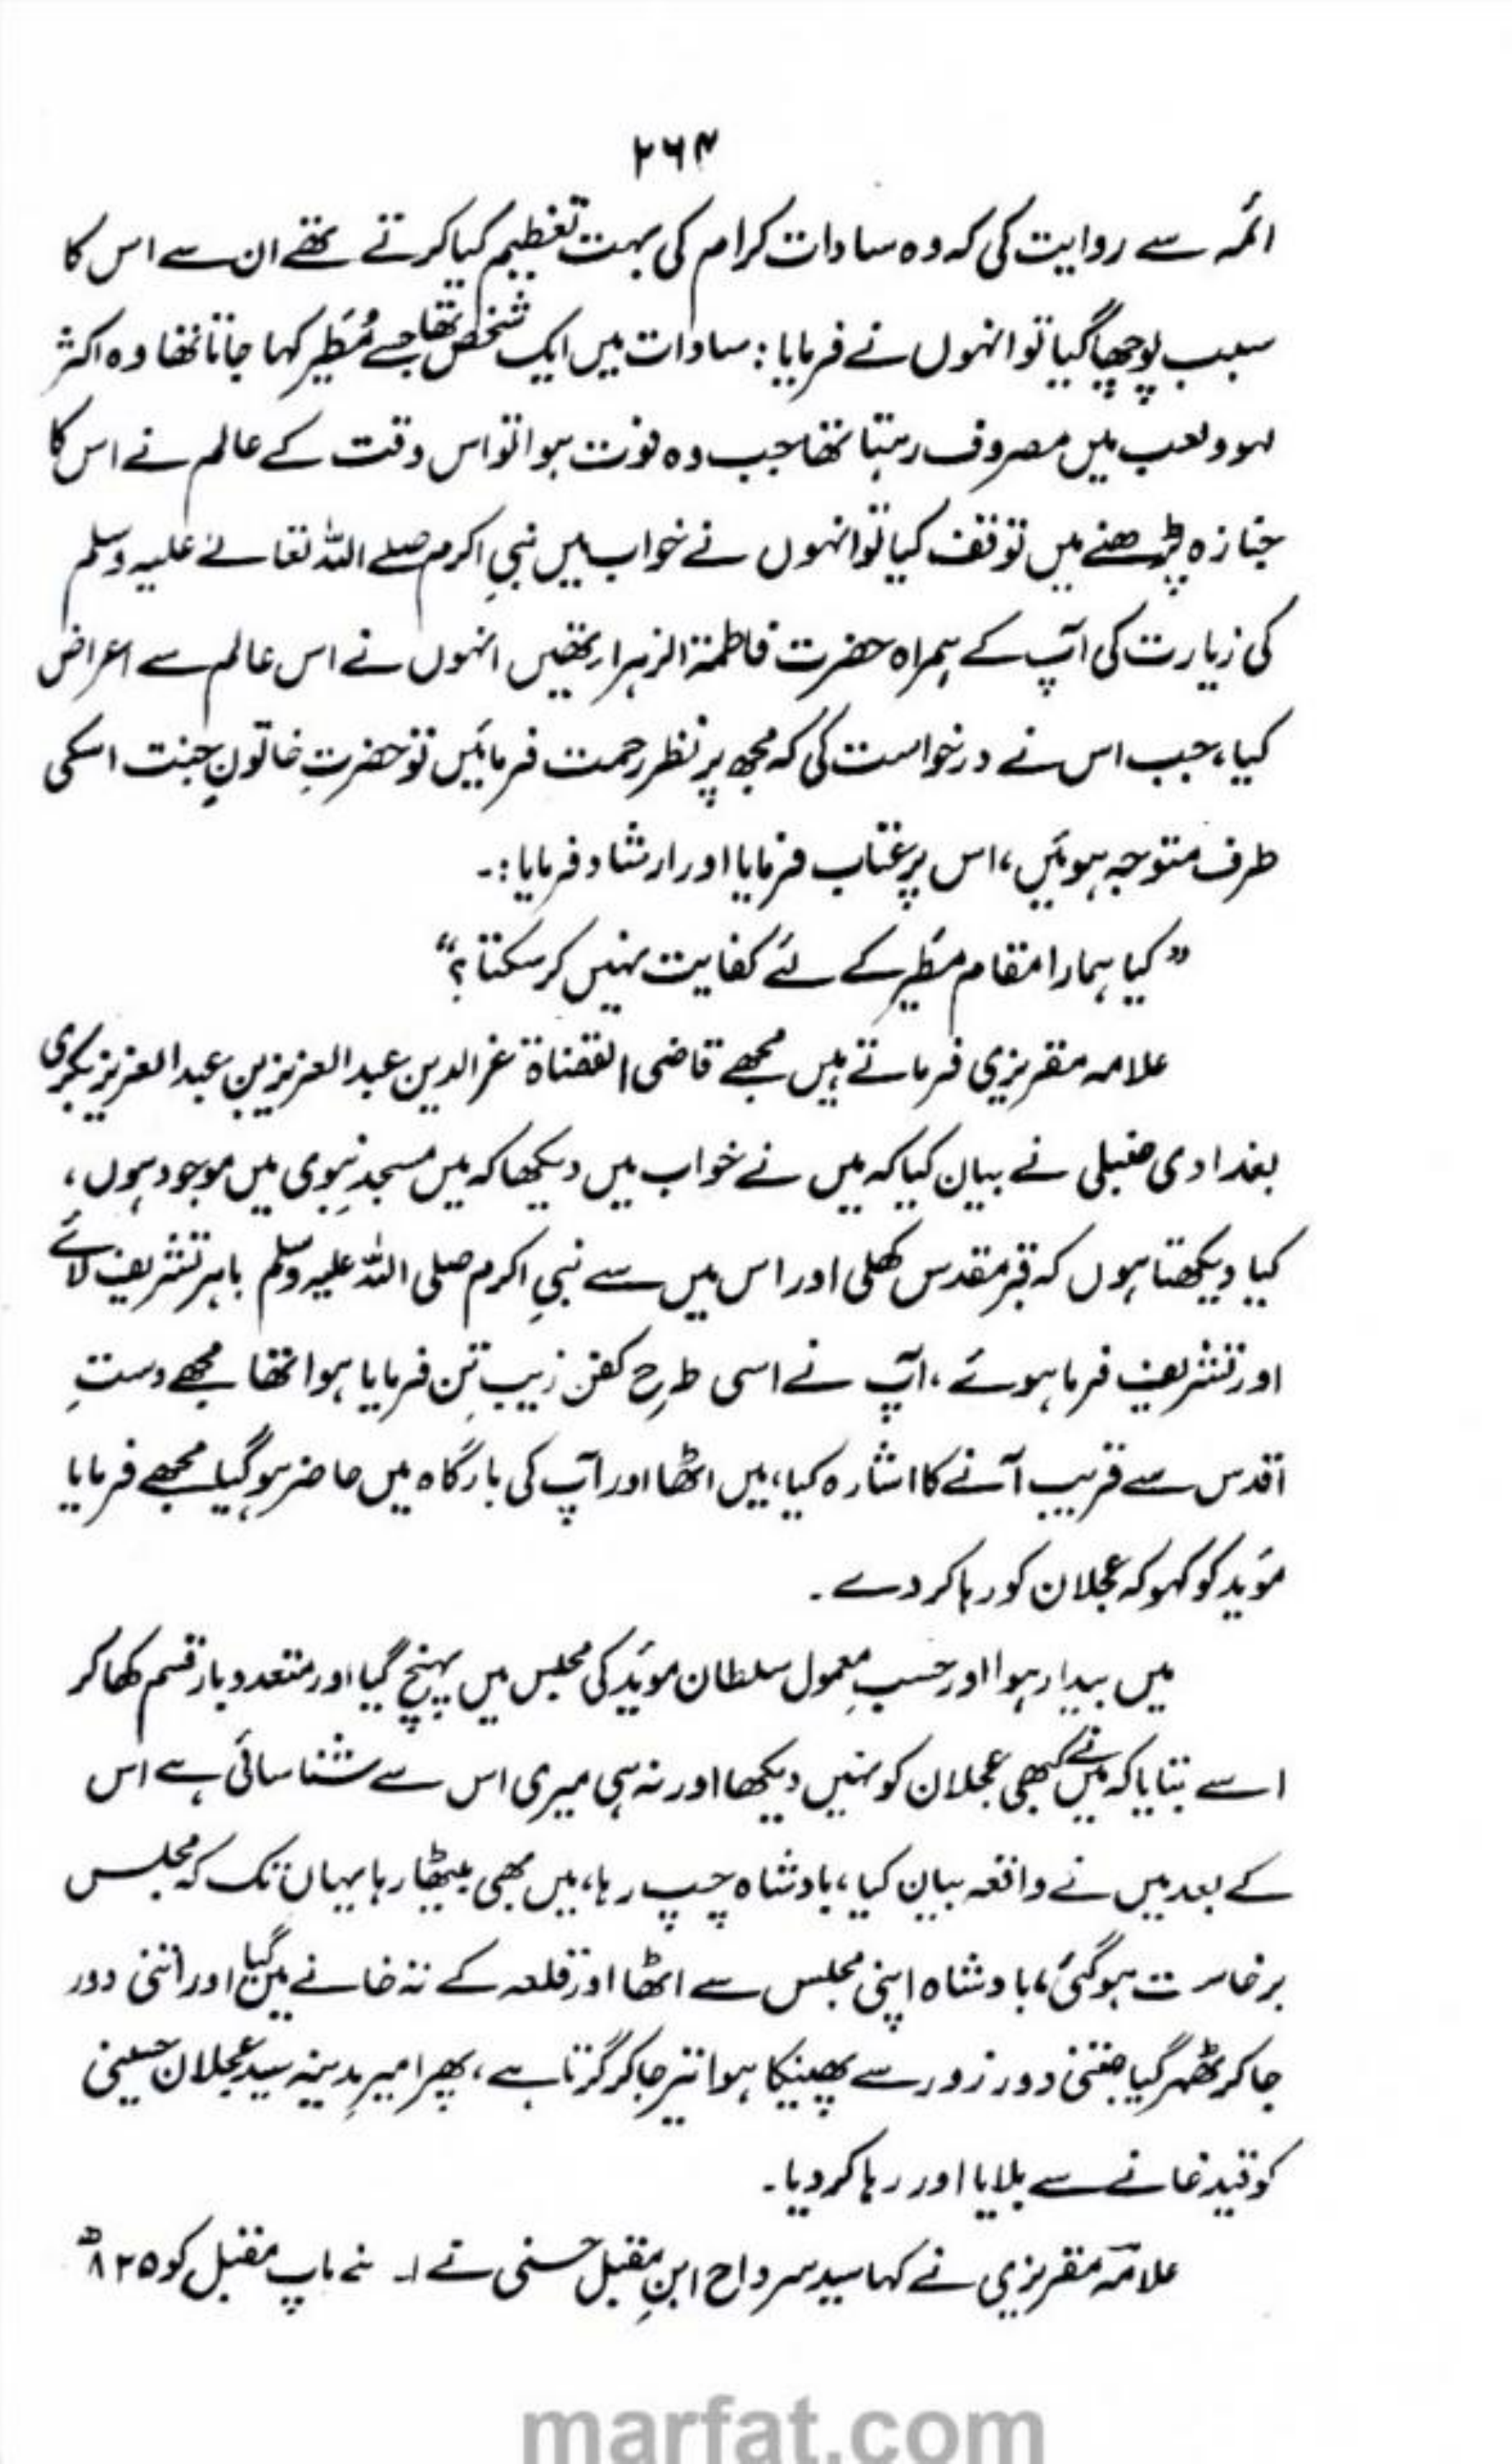 ۲۶۴
ائمہ سے روایت کی کہ وہ سادات کرام کی بہت تعظیم کیا کرتے تھے ان سے اس کا
سبب پوچھا گیا تو انہوں نے فرمایا : سادات میں ایک شخص تھا جسے مُطَیر کہا جاتا تھا وہ اکثر
لہو و لعب میں مصروف رہتا تھا جب وہ فوت ہوا تو اس وقت کے عالم نے اس کا
جنازہ پڑھنے میں توقف کیا تو انہوں نے خواب میں نبیِ اکرم صلے اللہ تعالےٰ علیہ وسلم
کی زیارت کی آپ کے ہمراہ حضرت فاطمۃ الزہراء تھیں انہوں نے اس عالم سے اعراض
کیا، جب اس نے درخواست کی کہ مجھ پر نظر رحمت فرمائیں تو حضرتِ خاتونِ جنت اسکی
طرف متوجہ ہوئیں، اس پر عتاب فرمایا اور ارشاد فرمایا :۔
”کیا ہمارا مقام مطیر کے لئے کفایت نہیں کر سکتا ؟“
علامہ مقریزی فرماتے ہیں مجھے قاضی القضاۃ عز الدین عبد العزیز بن عبد العزیز بکری
بغدادی حنبلی نے بیان کیا کہ میں نے خواب میں دیکھا کہ میں مسجدِ نبوی میں موجود ہوں ،
کیا دیکھتا ہوں کہ قبر مقدس کھلی اور اس میں سے نبیِ اکرم صلی اللہ علیہ وسلم باہر تشریف لائے
اور تشریف فرما ہوئے ، آپ نے اسی طرح کفن زیبِ تن فرمایا ہوا تھا مجھے دستِ
اقدس سے قریب آنے کا اشارہ کیا، میں اٹھا اور آپ کی بارگاہ میں حاضر ہو گیا مجھے فرمایا
مؤید کو کہو کہ عجلان کو رہا کر دے ۔
میں بیدار ہوا اور حسبِ معمول سلطان مؤید کی مجلس میں پہنچ گیا اور متعدد بار قسم کھا کر
اسے بتایا کہ میں نے کبھی عجلان کو نہیں دیکھا اور نہ ہی میری اس سے شناسائی ہے اس
کے بعد میں نے واقعہ بیان کیا، بادشاہ چپ رہا، میں بھی بیٹھا رہا یہاں تک کہ مجلس
برخاست ہو گئی، بادشاہ اپنی مجلس سے اٹھا اور قلعہ کے تہ خانے میں گیا اور اتنی دور
جا کر ٹھہر گیا جتنی دور زور سے پھینکا ہوا تیر جا کر گرتا ہے ، پھر امیرِ مدینہ سید عجلان حسینی
کو قید خانے سے بلایا اور رہا کر دیا ۔
علامہ مقریزی نے کہا سید سرداح ابنِ مقبل حسنی نے باپ مقبل کو ۸۲۵ھ
marfat.com